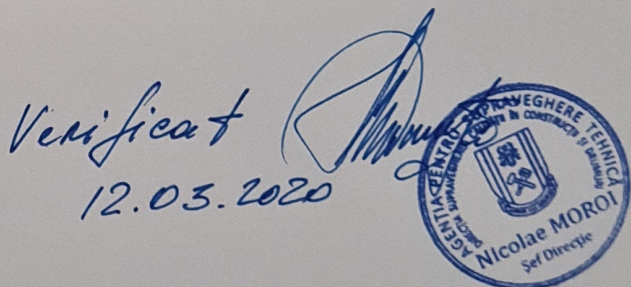 Verificat
12.03.2020
AGENȚIA PENTRU SUPRAVEGHERE TEHNICĂ
DIRECȚIA SUPRAVEGHERE CALITĂȚII ÎN CONSTRUCȚII ȘI DRUMURI
Nicolae MOROI
Șef Direcție